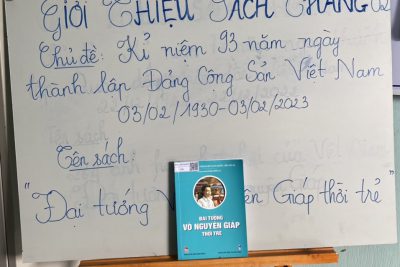 GIỚI THIỆU SÁCH THÁNG 02
Chủ đề: Kỉ niệm 93 năm ngày
thành lập Đảng Cộng Sản Việt Nam
03/02/1930-03/02/2023
Tên sách:
"Đại tướng V ên Giáp thời trẻ"
ĐẠI TƯỚNG
VÕ NGUYÊN GIÁP
THỜI TRẺ